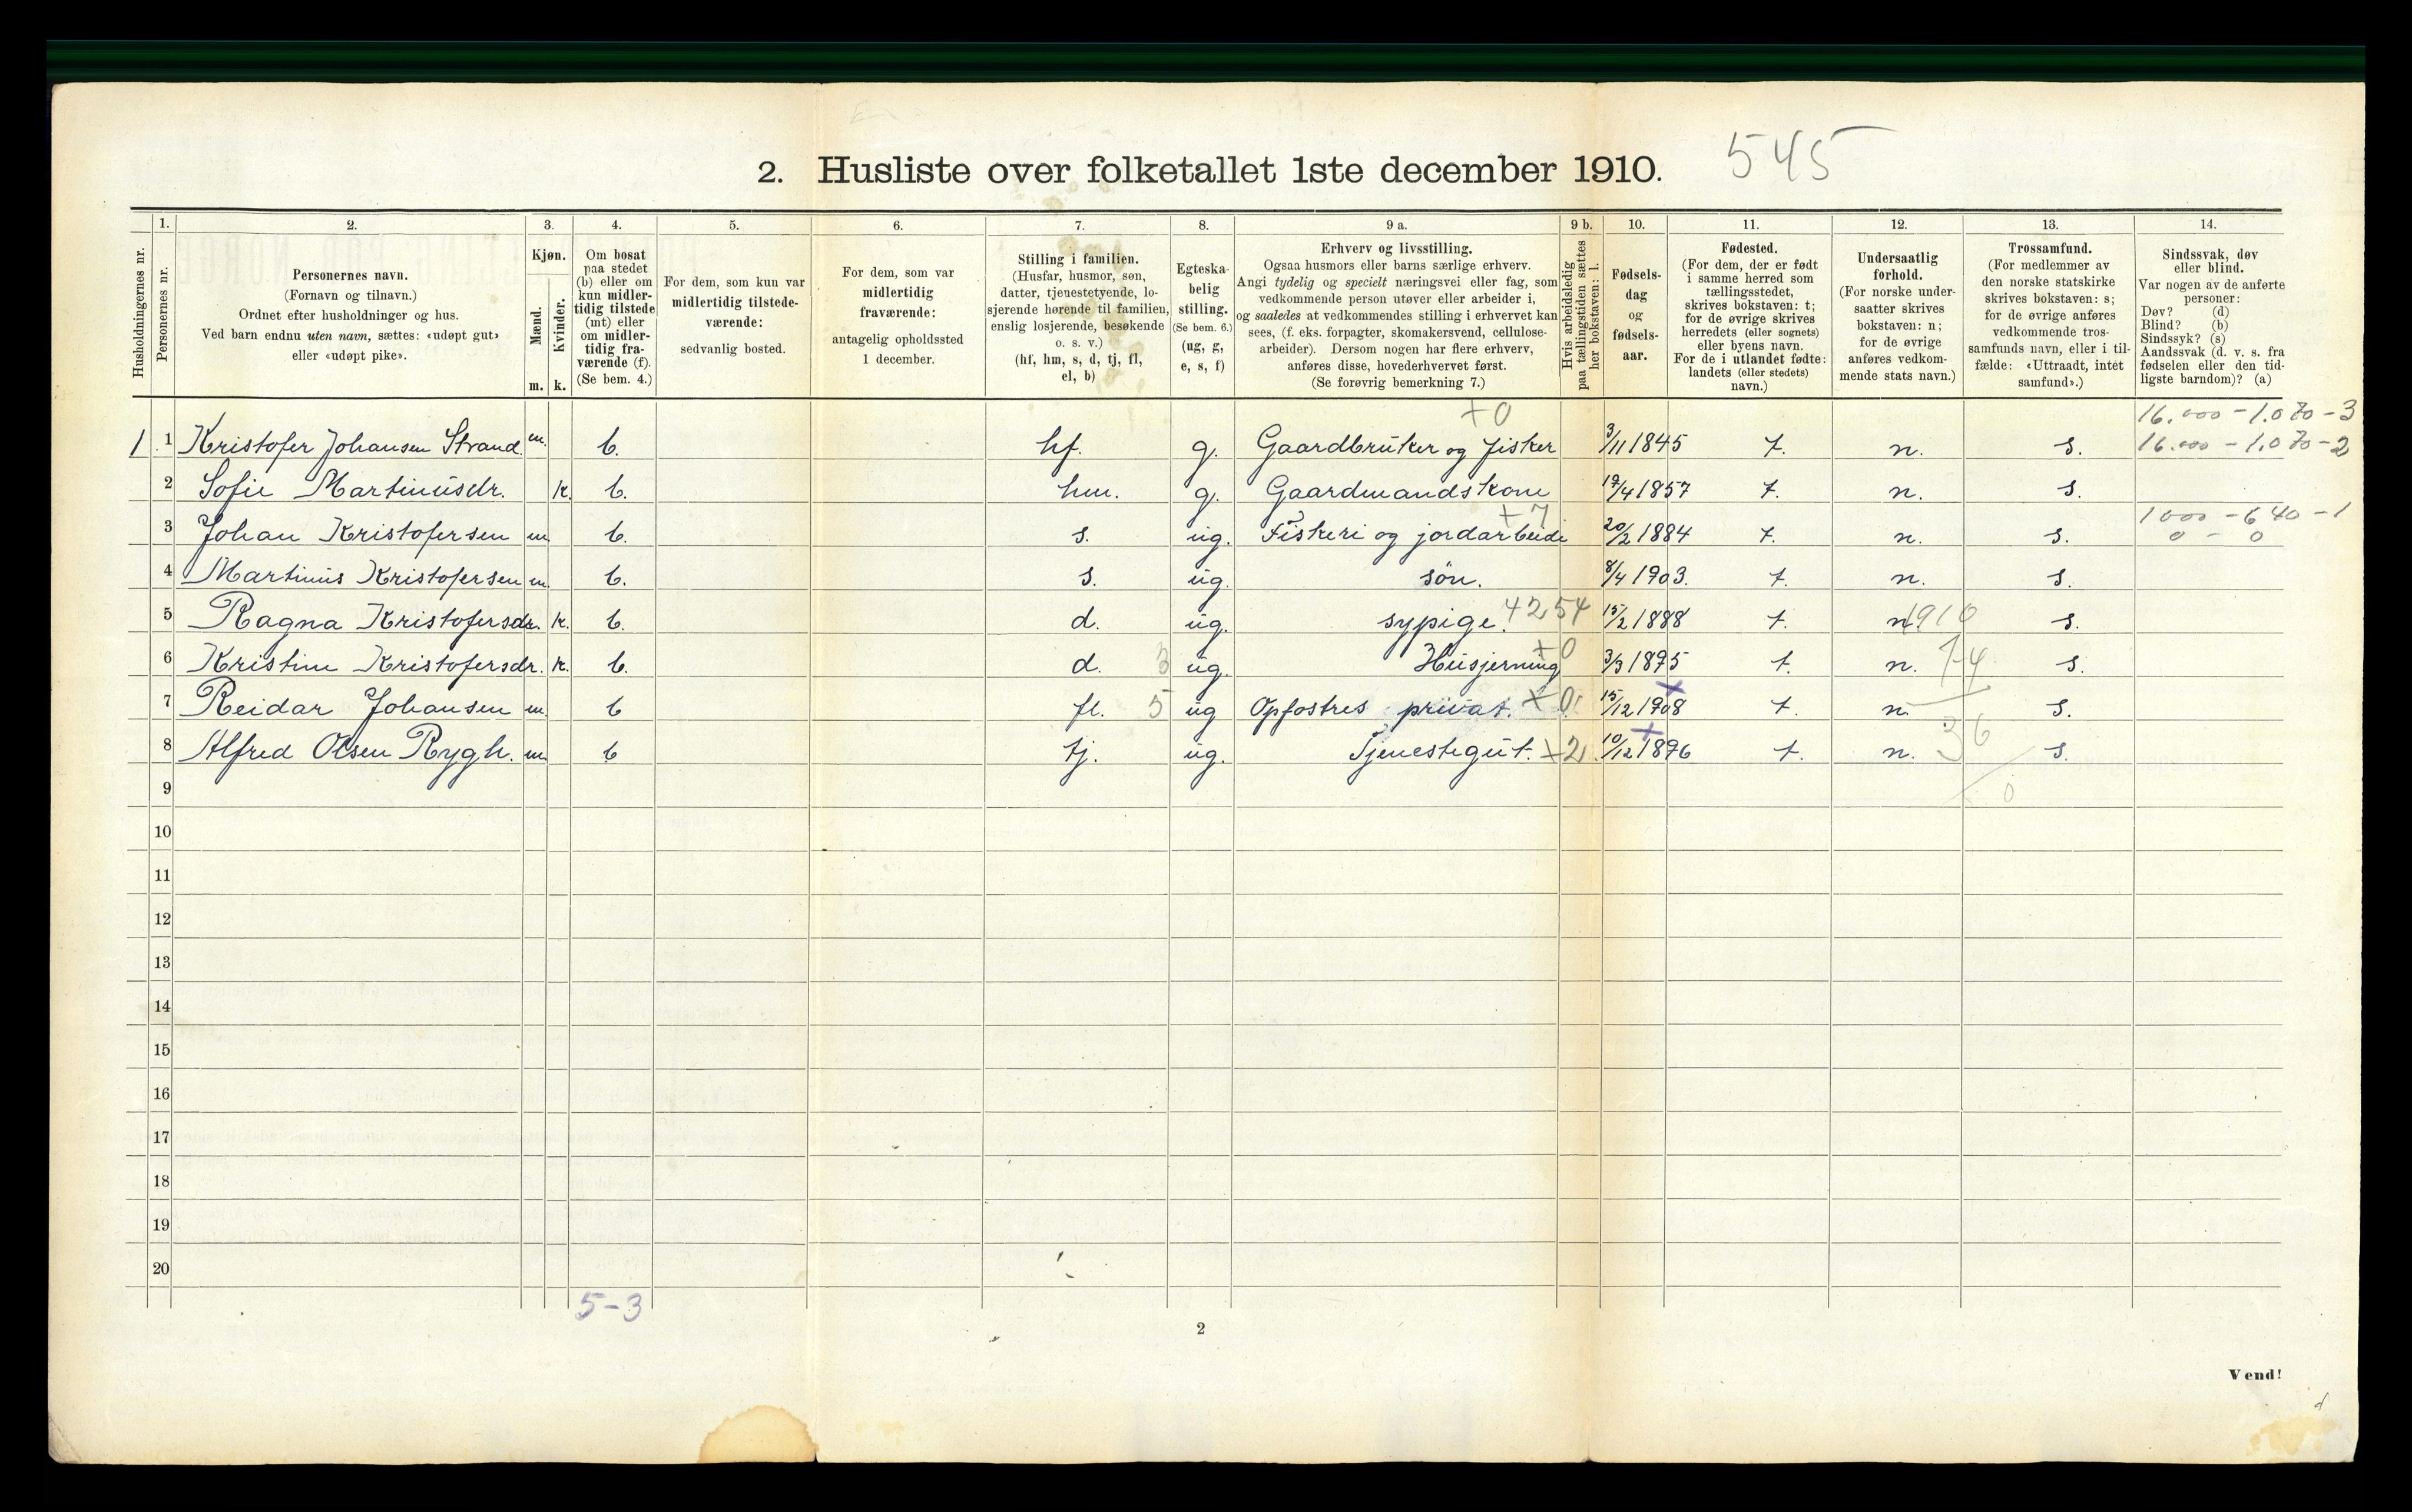 2. Husliste over folketallet 1ste december 1910. 545
Husholdningernes nr.
1.
Personernes nr.
2.
Personernes navn.
(Fornavn og tilnavn.)
Ordnet efter husholdninger og hus.
Ved barn endnu uten navn, sættes: «udøpt gut»
eller «udøpt pike».
3.
Kjøn.
Mænd.
Kvinder.
m. k.
4.
Om bosat
paa stedet
(b) eller om
kun midler-
tidig tilstede
(mt) eller
om midler-
tidig fra-
værende (f).
(Se bem. 4.)
5.
For dem, som kun var
midlertidig tilstede-
værende:
sedvanlig bosted.
6.
For dem, som var
midlertidig
fraværende:
antagelig opholdssted
1 december.
7.
Stilling i familien.
(Husfar, husmor, søn,
datter, tjenestetyende, lo-
sjerende hørende til familien,
enslig losjerende, besøkende
o. s. v.)
(hf, hm, s, d, tj, fl,
el, b)
8.
Egteska-
belig
stilling.
(Se bem. 6.)
(ug, g,
e, s, f)
9 a.
Erhverv og livsstilling.
Ogsaa husmors eller barns særlige erhverv.
Angi tydelig og specielt næringsvei eller fag, som
vedkommende person utøver eller arbeider i,
og saaledes at vedkommendes stilling i erhvervet kan
sees, (f. eks. forpagter, skomakersvend, cellulose-
arbeider). Dersom nogen har flere erhverv,
anføres disse, hovederhvervet først.
(Se forøvrig bemerkning 7.)
9 b.
Hvis arbeidsledig
paa tællingstiden sættes
her bokstaven: l.
10.
Fødsels-
dag
og
fødsels-
aar.
11.
Fødested.
(For dem, der er født
i samme herred som
tællingsstedet,
skrives bokstaven: t;
for de øvrige skrives
herredets (eller sognets)
eller byens navn.
For de i utlandet fødte:
landets (eller stedets)
navn.)
12.
Undersaatlig
forhold.
(For norske under-
saatter skrives
bokstaven: n;
for de øvrige
anføres vedkom-
mende stats navn.)
13.
Trossamfund.
(For medlemmer av
den norske statskirke
skrives bokstaven: s;
for de øvrige anføres
vedkommende tros-
samfunds navn, eller i til-
fælde: «Uttraadt, intet
samfund».)
14.
Sindssvak, døv
eller blind.
Var nogen av de anførte
personer:
Døv? (d)
Blind? (b)
Sindssyk? (s)
Aandssvak (d. v. s. fra
fødselen eller den tid-
ligste barndom)? (a)
+0 16.000 - 1.070 - 3
1 1 Kristofer Johansen Strand m. b. hf. g. Gaardbruker og fisker 3/11 1845 t. n. s. 16.000 - 1.070 - 2
2 Sofie Martinusdr. k. b. hm. g. Gaardmandskone 17/4 1857 t. n. s.
+7 1000 - 640 - 1
3 Johan Kristofersen m. b. s. ug. Fiskeri og jordarbeide 20/2 1884 t. n. s. 0 - 0
4 Martinus Kristofersen m. b. s. ug. søn. 8/4 1903. t. n. s.
5 Ragna Kristofersdr. k. b. d. ug. sypige. 4254 15/2 1888 t. n. 1910 s.
6 Kristine Kristofersdr. k. b. d. 3 ug. Husjerning +0 3/3 1895 t. n. 74 s.
7 Reidar Johansen m. b fl. 5 ug Opfostres privat. +0 15/12 1908 t. n. s.
8 Alfred Olsen Rygh. m. b tj. ug. Tjenestegut. +2 10/12 1896 t. n. 36 s.
9 0
10
11
12
13
14
15
16
17
18
19
20
5-3
2
Vend!